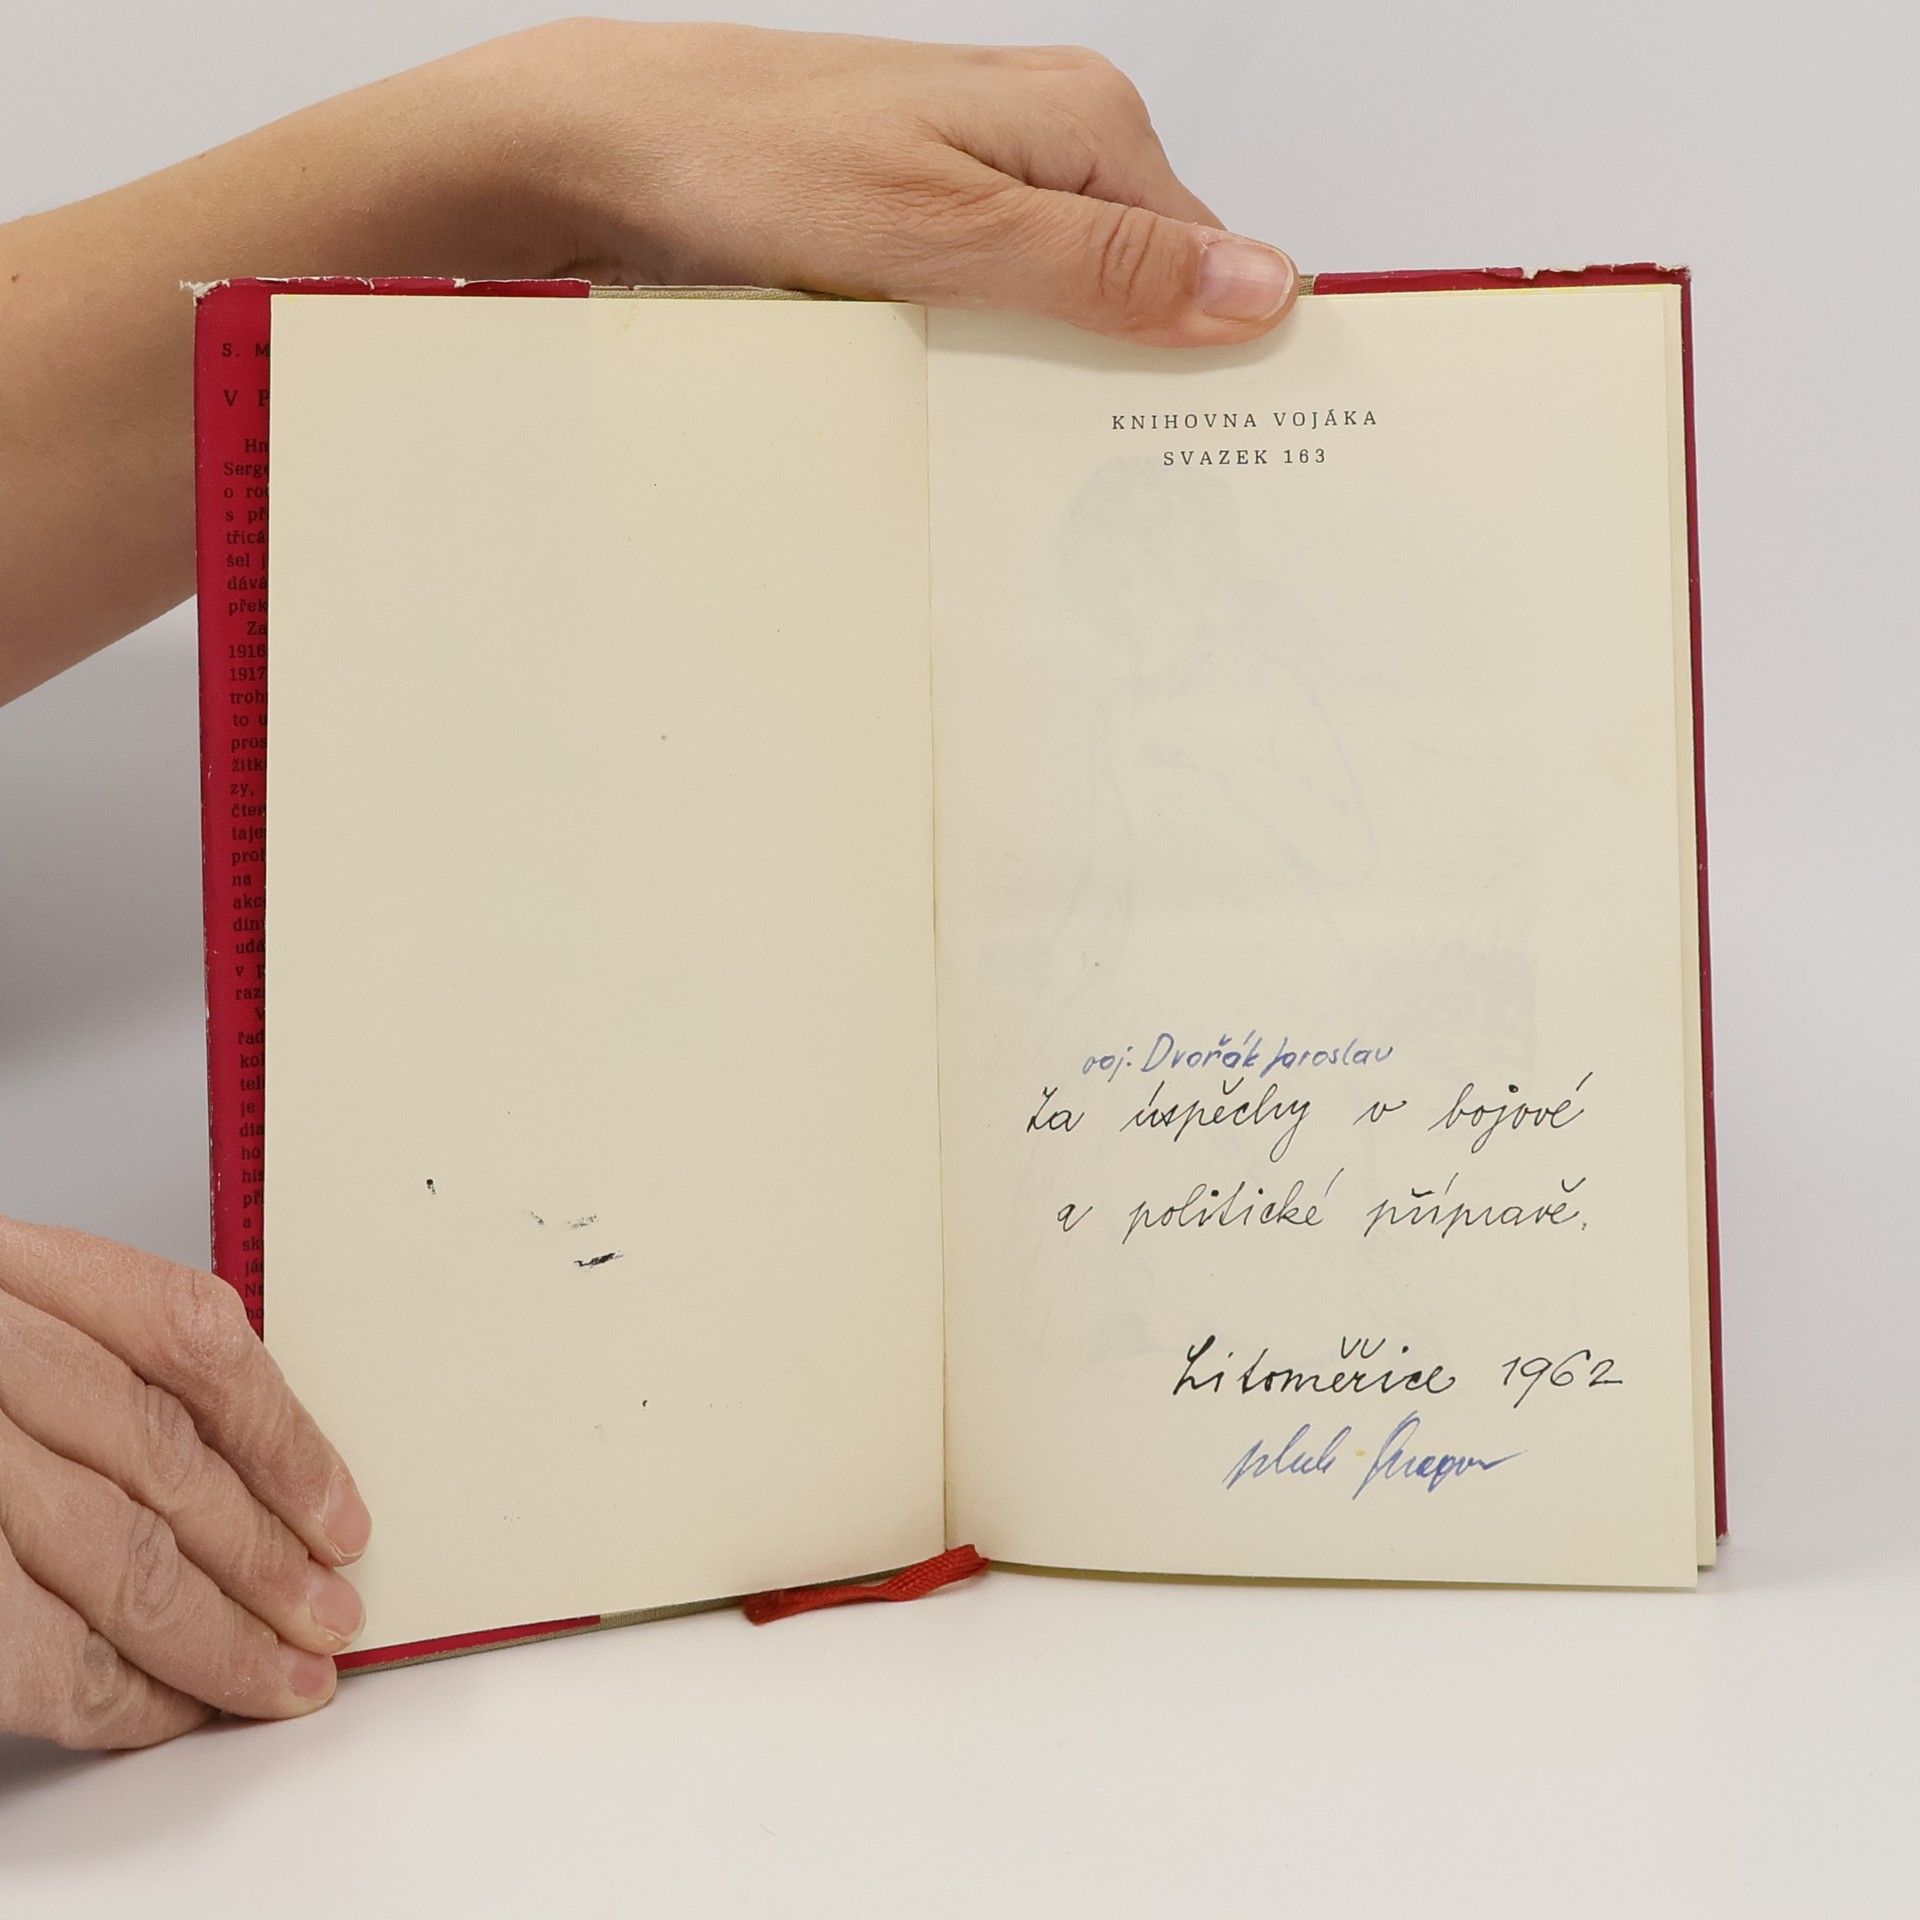 S. M
V P
Hn
Serge
o ro
s př
třicá
šel j
dává
přek
Za
1916
1917
troh
to u
pros
žitk
zy,
čten
taje
proh
na
akc
din
udá
v p
raz
V
řad
kol
tel
je
dia
ho
his
př
a
sk
já
KNIHOVNA VOJÁKA
SVAZEK 163
voj. Dvořák Jaroslav
Za úspěchy v bojové
a politické přípravě.
Litoměřice 1962